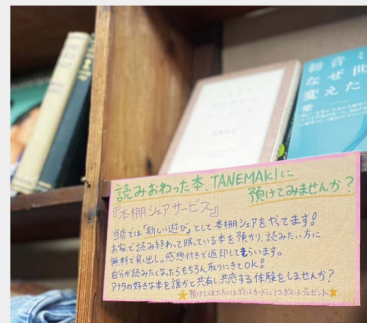 初音ミ
なぜ世
変えた
読みおわった本、TANEMAKIに
預けてみませんか?
『本棚シェアサービス』
当店では「新しい遊び」として本棚シェアをやってます!
お家で読み終わって眠っている本を預かり、読みたい方に
無料で貸し出し。感想付きで返却して貰います。
自分が読みたくなったらもちろん取りにきてOK!
アナタの好きな本を誰かと共有し共感する体験をしませんか?
★預けてくださった方にはポイントカードに1つポイントプレゼント★